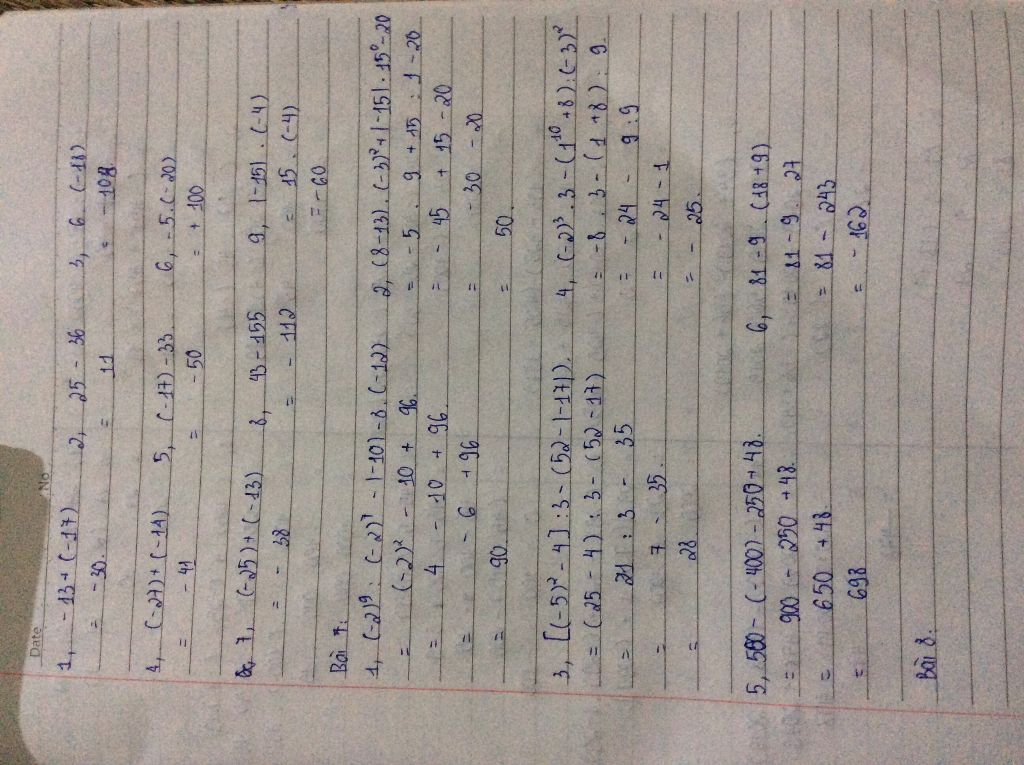 Date
No
1, -13+(-17) 2, 25 - 36 3, 6.(-18)
= -30. = 11 = -108
4, (-27)+(-14) 5, (-17)-33 6, -5.(-20)
= -41 = -50 = +100
7, (-25)+(-13) 8, 43-155 9, |-15|.(-4)
= -38 = -112 = 15.(-4)
= -60
Bài 7:
1, (-2)⁹:(-2)⁷-|-10|-8.(-12) 2, (8-13).(-3)²+|-15|.15⁰-20
= (-2)² - 10 + 96. = -5.9+15:1-20
= 4 - 10 + 96. = -45+15-20
= -6 + 96 = -30-20
= 90. = 50.
3, [(-5)²-4]:3-(52-|-17|). 4, (-2)³.3-(1¹⁰+8):(-3)²
= (25-4):3-(52-17) = -8.3-(1+8):9.
= 21:3-35 = -24 - 9:9
= 7 - 35. = -24-1
= 28 = -25.
5, 500-(-400)-250+48. 6, 81-9.(18+9)
= 900 - 250 + 48. = 81-9.27
= 650 + 48 = 81-243
= 698 = -162.
Bài 8: